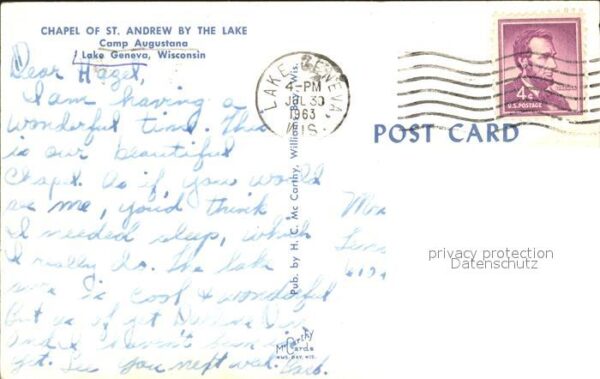 CHAPEL OF ST. ANDREW BY THE LAKE
Camp Augustana
Lake Geneva, Wisconsin
Dear Hazel,
I am having a
wonderful time. This
is our beautiful
Chapel. If you would
see me, you'd think
I needed sleep, which
I really do. The lake
is cool & wonderful
But as of yet
And I haven't been in
yet. See you next week. Barb.
Pub. by H. C. Mc Carthy, Williams Bay, Wis.
McCarthy
Cards
WMS. BAY, WIS.
LAKE GENEVA,
4-PM
JUL 30
1963
WIS.
4¢
U.S. POSTAGE
POST CARD
privacy protection
Datenschutz